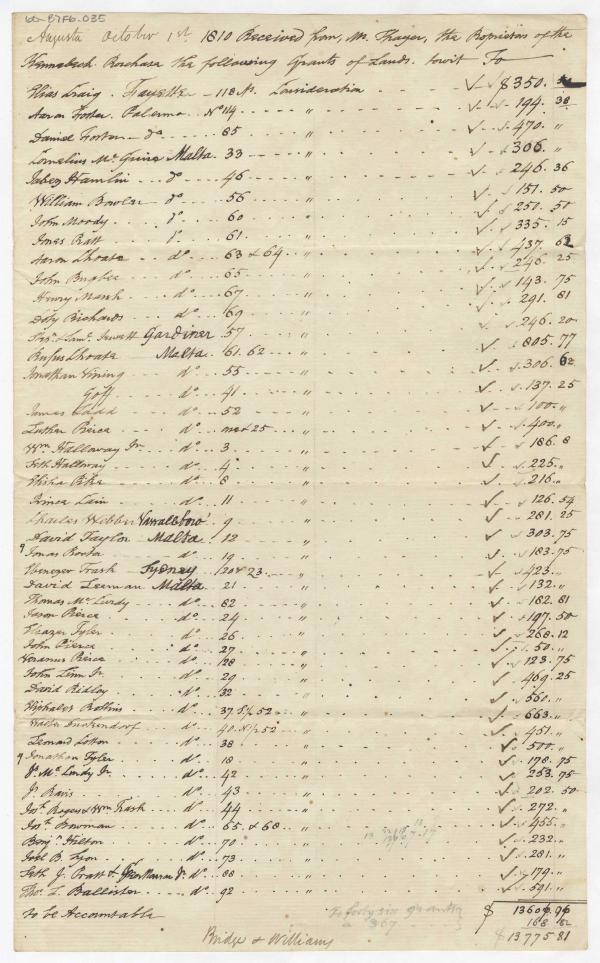 Augusta October 1st 1810 Received from Mr. Thayer, the Proprietors of the
Kennebeck Purchase the following Grants of Lands. towit To
Elias Craig . Fayette - 118 A. Consideration $350.
Aaron Foster. Palermo No 114 " 194. 38
Daniel Foster do 85 " 470. "
Cornelius Mc Guire Malta. 33 " 306. "
Jabez Hamlin do 46 " 246. 36
William Bowler do 56 " 151. 50
John Moody do 60 " 250. 50
Jonas Pratt do 61 " 335. 15
Aaron Choate do 63 & 64 " 437. 62
John Bugbee do 65 " 246. 25
Henry Marsh do 67 " 143. 75
Doty Richards do 69 " 291. 81
Jewett Gardiner 57 " 246. 20
Rufus Choate Malta. 61. 62 " 805. 77
Jonathan Vining do 55 " 306. 62
Goff do 41 " 137. 25
James Ladd do 52 " 100. "
Luther Pierce do 25 " 400. "
Wm Hallowey Jr do 3 " 186. 8
Seth Hallowey do 4 " 225. "
Elisha Pike do 8 " 216. "
Prince Cain do 11 " 126. 54
Charles Webber Vassalboro' 9 " 281. 25
David Taylor Malta 12 " 303. 75
9 Jonas do 19 " 183. 75
Ebenezer Trask Sydney 120 & 23 " 423. "
David Leeman Malta 21 132. "
Thomas Mc Curdy do 82 182. 81
Jason Pierce do 24 197. 50
Eleazer Tyler do 26 268. 12
John Pierce do 27 50. "
Veranus Pierce do 128 123. 75
John Linn Jr. do 29 469. 25
David Ridley do 32 560. "
Rollins do 37. S. ½ 52 " 663. "
do 40. N ½ 52 " 451. "
Leonard do 38 500. "
9 Jonathan Tyler do 18 178. 75
Jn Mc Curdy Jr. do 42 253. 75
Jr. Davis do 43 202. 50
Rogers & Wm Trask do 44 272. "
Bowman do 65 & 68 " 455. "
Benjn Hilton do 70 232. "
Joel B. Lyon do 73 281. "
Seth J. do 88 179. "
Thos. L. Ballister do 92 591. "
To be Accountable $ 13606. 96
To forty six grants 168 82
a 367 $ 13775 81
Bridge & Williams